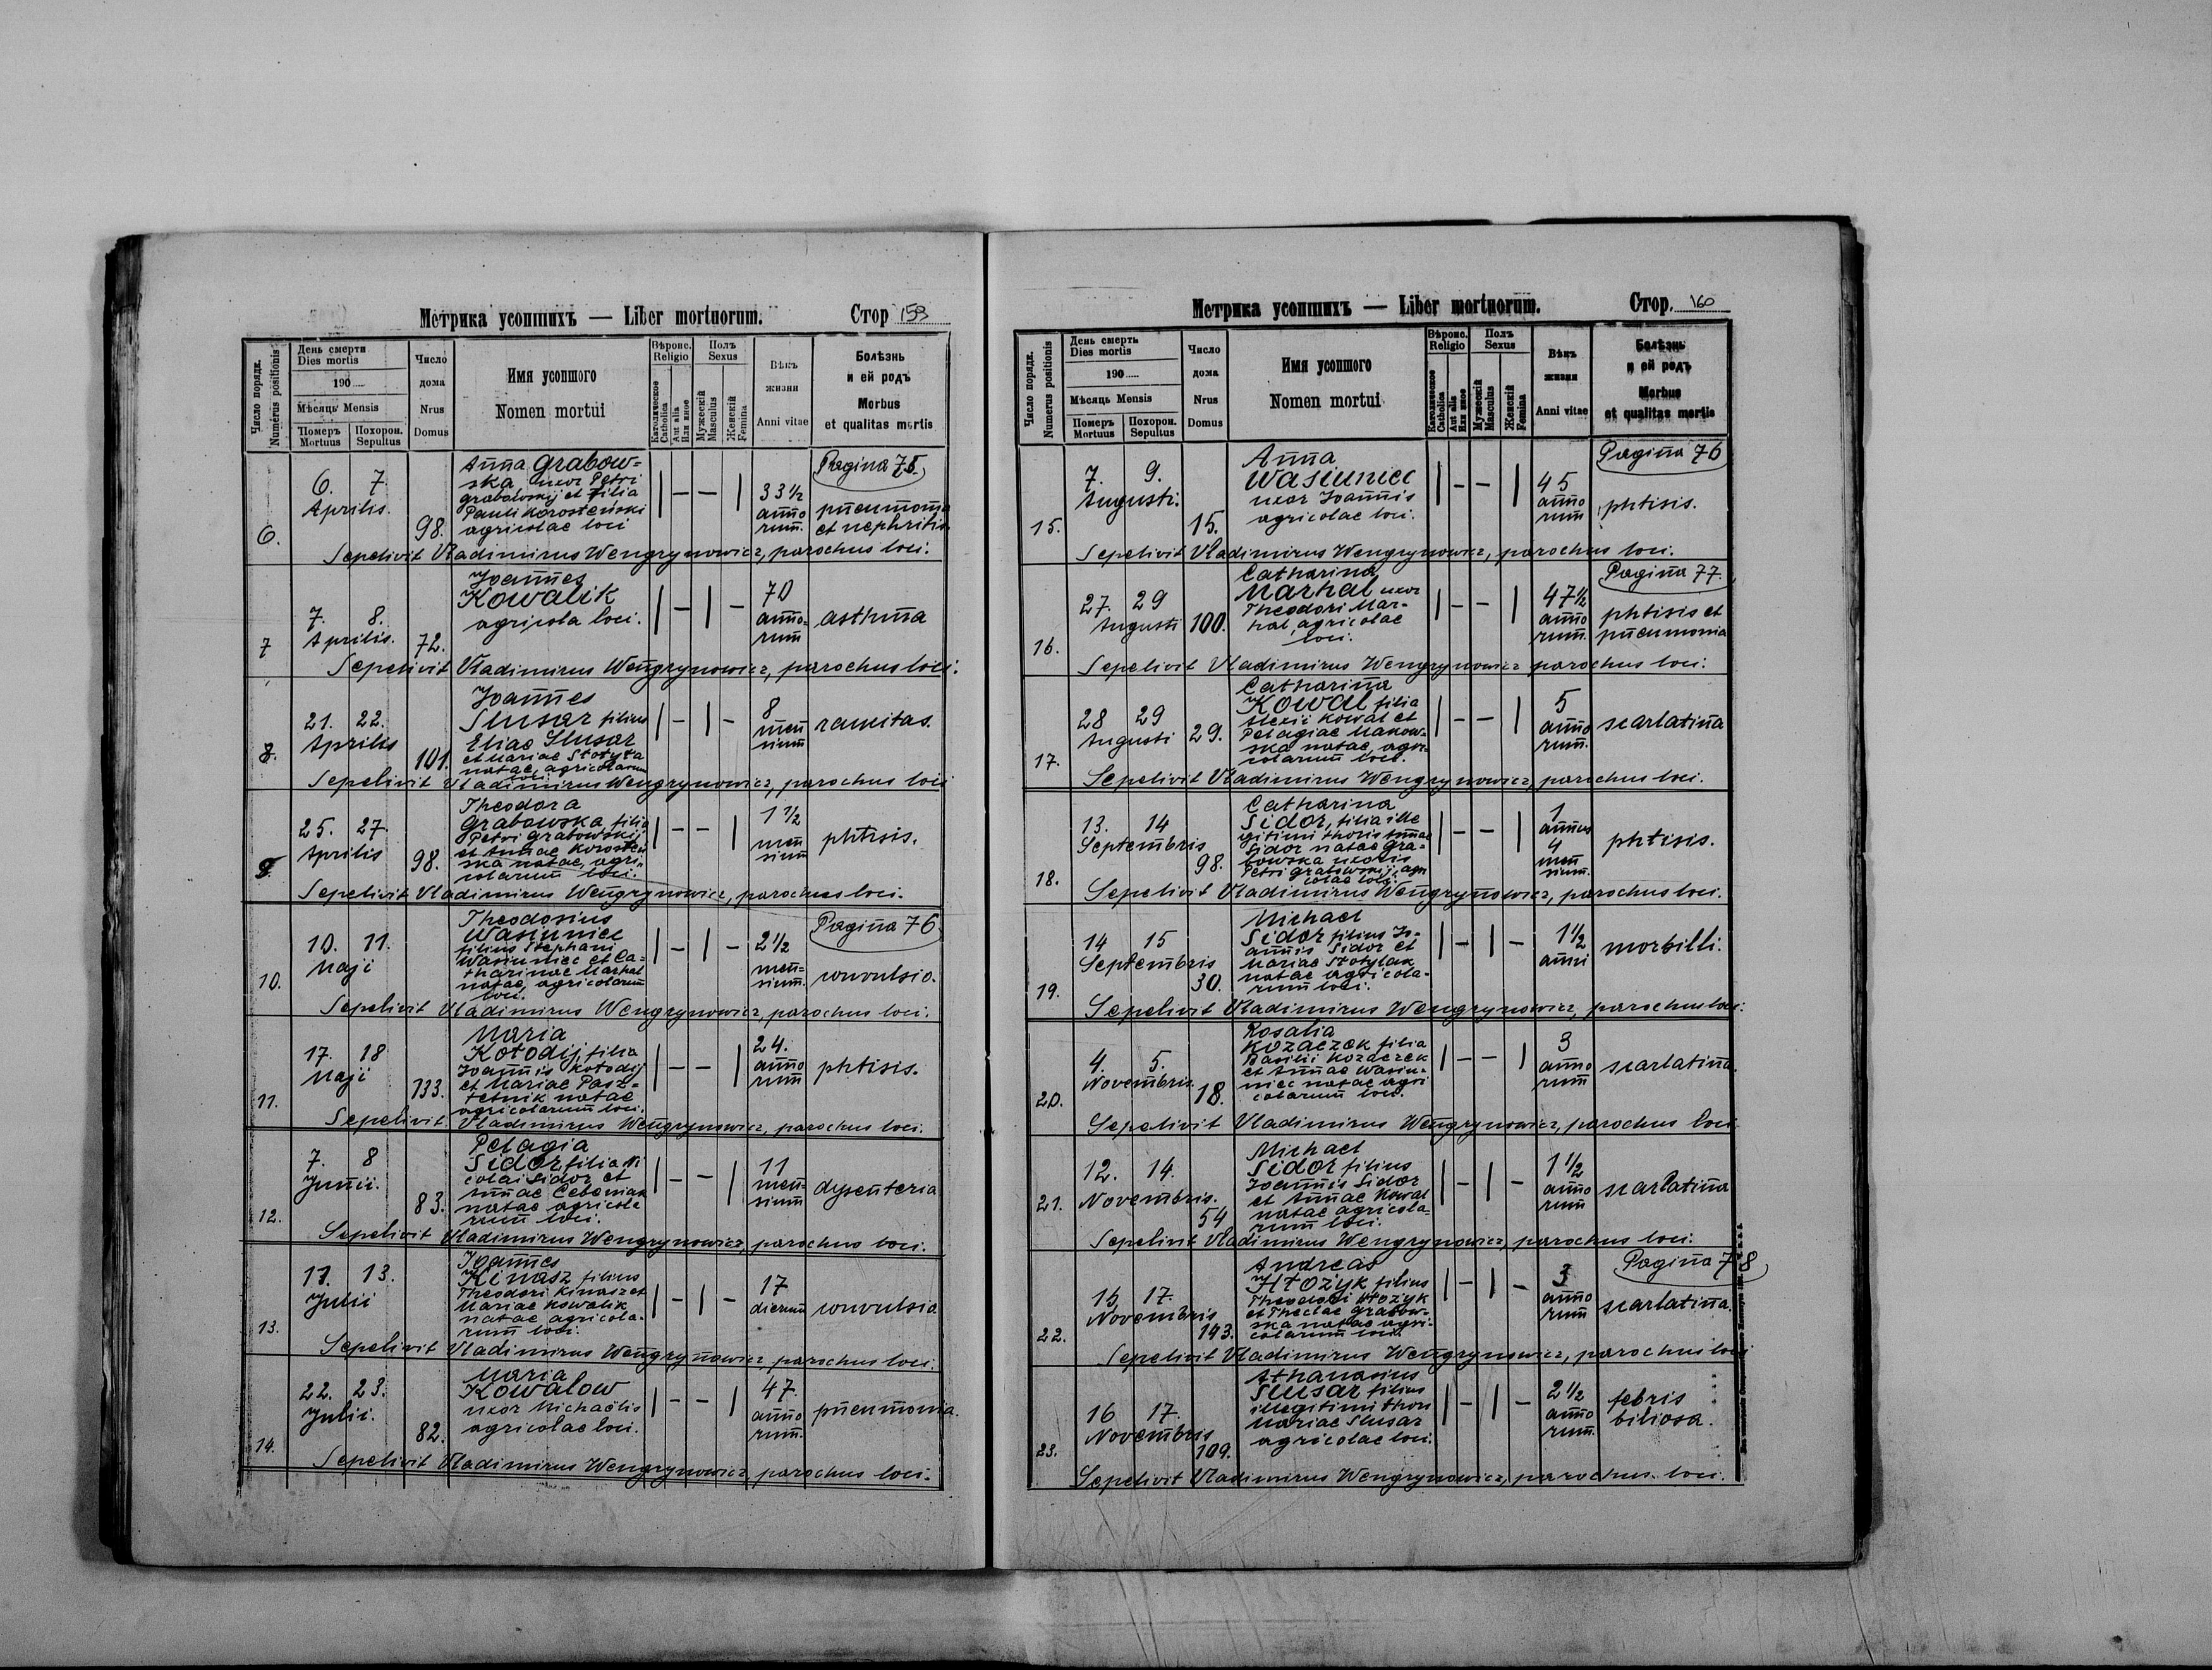 Метрика усопшихъ — Liber mortuorum. Стор 159
Число порядк. Numerus positionis
День смерти
Dies mortis
190
Мѣсяць Mensis
Померъ Mortuus
Похорон. Sepultus
Число дома
Nrus Domus
Имя усопшого
Nomen mortui
Вѣроис. Religio
Католическое Catholica
Aut alia Или иное
Полъ Sexus
Мужескій Masculus
Женскій Femina
Вѣкъ жизни
Anni vitae
Болѣзнь и ей родъ
Morbus et qualitas mortis
Pagina 75.
6. 6. 7 Aprilis. 98.
Anna Grabow=
ska uxor Petri
Grabowskij et filia
Pauli Korosteński
agricolae loci
33 1/2 anno rum.
pneumonia et nephritis
Sepelivit Vladimirus Wengrynowicz, parochus loci.
7 7. 8. Aprilis. 72.
Joannes
Kowalik
agricola loci.
70 anno= rum
asthma
Sepelivit Vladimirus Wengrynowicz, parochus loci.
8. 21. 22. Aprilis 101.
Joannes
Slusar filius
Eliae Slusar
et Mariae Stotyla
natae, agricolarum
loci.
8 men sium
raucitas.
Sepelivit Vladimirus Wengrynowicz, parochus loci
9. 25. 27. Aprilis 98.
Theodora
Grabowska filia
Petri Grabowskij
et Annae Korosteń
ska natae, agri
colarum loci.
1 1/2 men sium
phtisis.
Sepelivit Vladimirus Wengrynowicz, parochus loci.
Pagina 76
10. 10. 11. Maji
Theodosius
Wasiuniec
filius Stephani
Wasiuniec et Ca=
tharinae Marhal
natae, agricolarum
loci.
2 1/2 men= sium.
convulsio.
Sepelivit Vladimirus Wengrynowicz, parochus loci.
11. 17. 18 Maji 133.
Maria
Kołodij, filia
Joannis Kołodij
et Mariae Pasz=
tetnik natae
agricolarum loci.
24. anno rum
phtisis.
Sepelivit Vladimirus Wengrynowicz, parochus loci.
12. 7. 8 Junii. 83.
Pelagia
Sidor filia Ni
colai Sidor et
Annae Ceheniak
natae agricola
rum loci.
11 men= sium
dysenteria
Sepelivit Vladimirus Wengrynowicz, parochus loci.
13. 11. 13. Julii
Joannes
Kinasz filius
Theodori Kinasz et
Mariae Kowalik
natae agricola-
rum loci.
17 dierum
convulsio
Sepelivit Vladimirus Wengrynowicz, parochus loci.
14. 22. 23. Julii. 82.
Maria
Kowalow
uxor Michaëlis
agricolae loci.
47. anno rum.
pneumonia.
Sepelivit Vladimirus Wengrynowicz, parochus loci.
Метрика усопшихъ — Liber mortuorum. Стор. 160
Число порядк. Numerus positionis
День смерть
Dies mortis
190
Мѣсяць Mensis
Померъ Mortuus
Похорон. Sepultus
Число дома
Nrus Domus
Имя усопшого
Nomen mortui
Вѣроис. Religio
Католическое Catholica
Aut alia Или иное
Полъ Sexus
Мужескій Masculus
Женскій Femina
Вѣкъ жизни
Anni vitae
Болѣзнь и ей родъ
Morbus et qualitas mortis
Pagina 76
15. 7. 9. Augusti. 15.
Anna
Wasiuniec
uxor Joannis
agricolae loci.
45 anno rum
phtisis.
Sepelivit Vladimirus Wengrynowicz, parochus loci.
Pagina 77.
16. 27. 29 Augusti 100.
Catharina
Marhal uxor
Theodori Mar-
hal, agricolae
loci.
47 1/2 anno rum.
phtisis et pneumonia
Sepelivit Vladimirus Wengrynowicz parochus loci.
17. 28 29 Augusti 29.
Catharina
Kowal filia
Alexii Kowal et
Pelagiae Makow-
ska natae, agri-
colarum loci.
5 anno rum.
scarlatina
Sepelivit Vladimirus Wengrynowicz, parochus loci.
18. 13. 14 Septembris 98.
Catharina
Sidor, filia ille
gitimi thoris Annae
Sidor natae Gra=
bowska uxoris
Petri Grabowskij, agri
colae loci.
1 annus 4 men sium.
phtisis.
Sepelivit Vladimirus Wengrynowicz, parochus loci.
19. 14 15 Septembris 30.
Michael
Sidor filius Jo-
annis Sidor et
Mariae Stotylak
natae agricola-
rum loci.
1 1/2 anni
morbilli.
Sepelivit Vladimirus Wengrynowicz, parochus loci.
20. 4. 5. Novembris. 18.
Rosalia
Kozaczek filia
Basilii Kozaczek
et Annae Wasiu-
niec natae agri
colarum loci.
3 anno rum
scarlatina.
Sepelivit Vladimirus Wengrynowicz, parochus loci
21. 12. 14. Novembris. 54
Michael
Sidor filius
Joannis Sidor
et Annae Kowal
natae agricola=
rum loci.
1 1/2 anno rum
scarlatina
Sepelivit Vladimirus Wengrynowicz, parochus loci.
Pagina 78
22. 15 17. Novembris 143.
Andreas
Htożyk filius
Theodori Htożyk
et Theclae Grabow-
ska natae agri-
colarum loci.
3 anno rum
scarlatina.
Sepelivit Vladimirus Wengrynowicz, parochus loci
23. 16 17. Novembris 109.
Athanasius
Slusar filius
illegitimi thori
Mariae Slusar
agricolae loci.
2 1/2 anno rum.
febris biliosa.
Sepelivit Vladimirus Wengrynowicz, parochus loci.